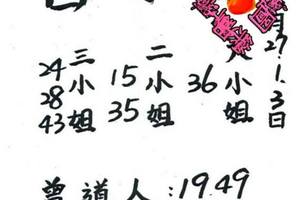 月27.1.3日
大小姐
36
二小姐
15
35
三小姐
24
28
43
曾道人:19.49